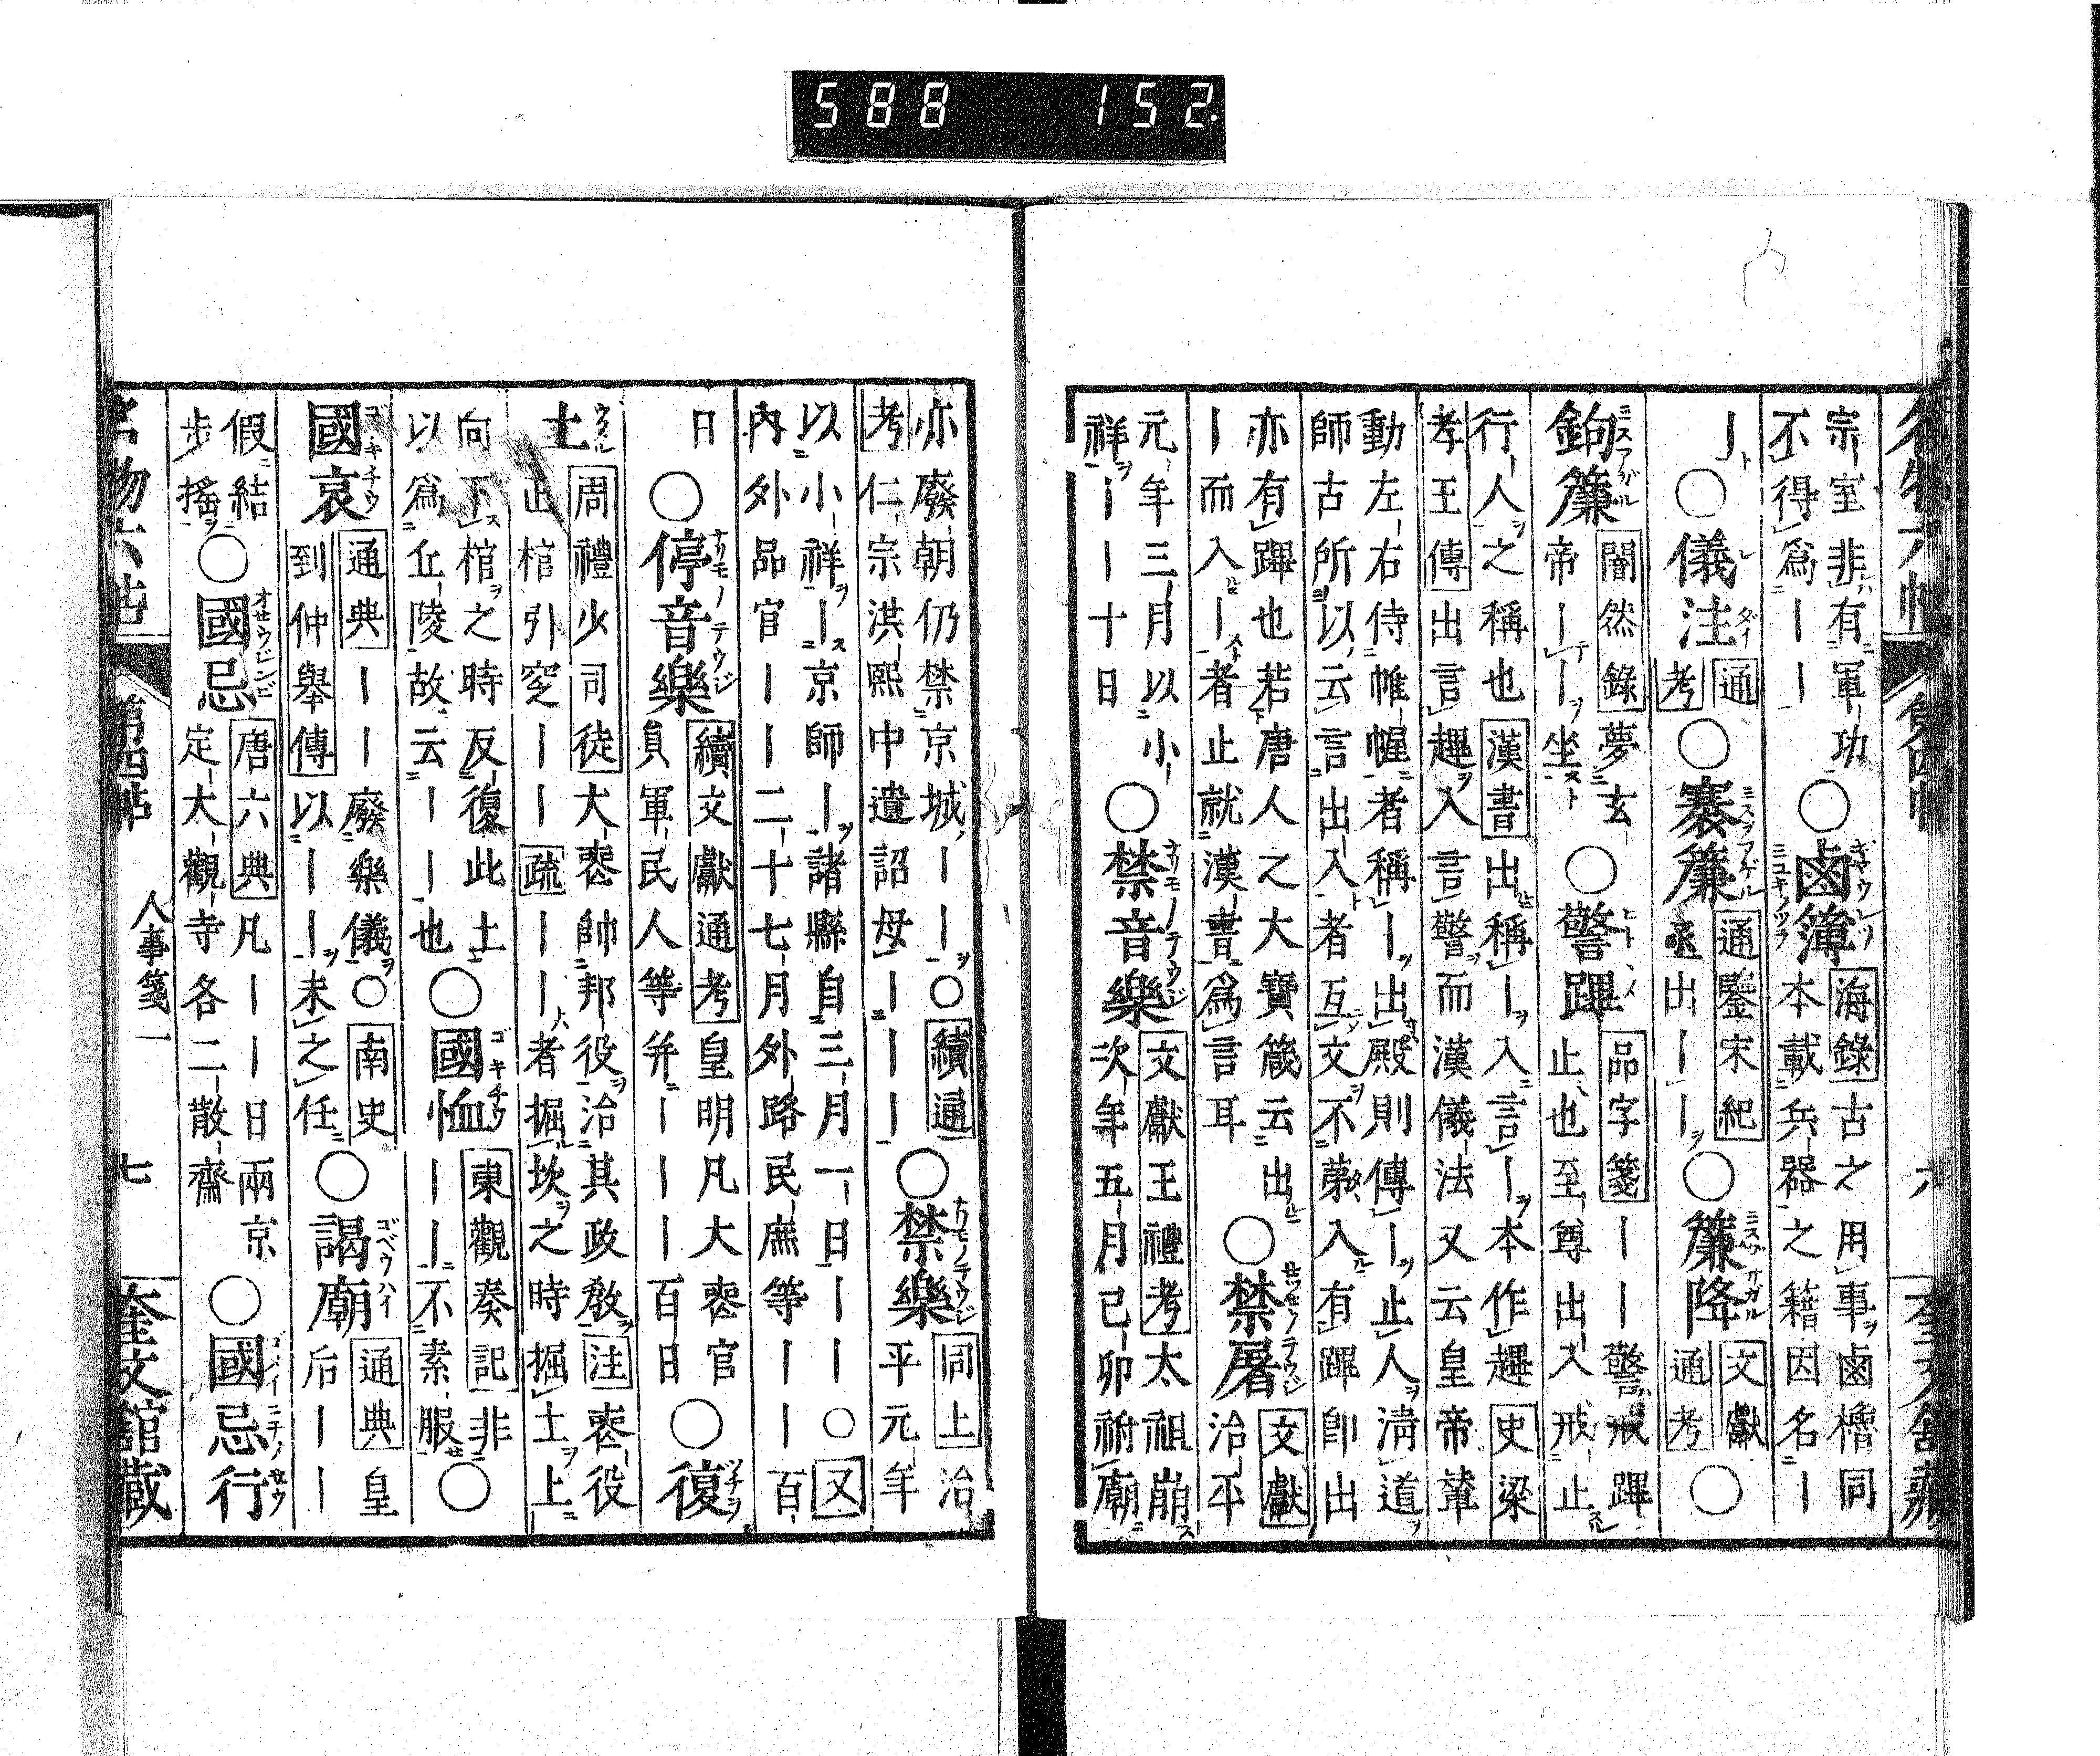 588 152
名物六帖 第四帖 六 奎文館藏
宗室非有軍功
不得爲ーー
○鹵簿
海錄古之用事鹵櫓同
本載兵器之籍因名ー
ー
○儀注
通
考
○褰簾
通鑒宋紀
丞出ーー
○簾降
文獻
通考
○
鉤簾
闇然錄夢玄
帝ーー坐
○警蹕
品字箋ーー警戒蹕
止也至尊出入戒止
行人之稱也漢書出稱ー入言ー本作趩史梁
孝王傳出言趩入言警而漢儀法又云皇帝輦
動左右侍帷幄者稱ー出殿則傳ー止人淸道
師古所以云言出入者互文不第入有蹕卽出
亦有蹕也若唐人之大寶箴云出
ー而入ー者止就漢書爲言耳
○禁屠
文獻
治平
元年三月以小
祥ーー十日
○禁音樂
文獻王禮考太祖崩
次年五月己卯祔廟
亦廢朝仍禁京城ーー○續通
考仁宗洪熙中遺詔毋ーーー
○禁樂
同上治
平元年
以小祥ー京師ー諸縣自三月一日ーー○又
内外品官ーー二十七月外路民庶等ーー百
日
○停音樂
續文獻通考皇明凡大喪官
員軍民人等幷ーーー百日
○復
土
周禮少司徒大喪帥邦役治其政敎注喪役
正棺引窆ーー疏ーー者掘坎之時掘土上
向下棺之時反復此土
以爲丘陵故云ーー也
○國恤
東觀奏記非
ーーー不素服
○
國哀
通典ーーー廢樂儀○南史
到仲舉傳以ーー未之任
○謁廟
通典皇
后ーー
假結
步搖
○國忌
唐六典凡ーー日兩京
定大觀寺各二散齋
○國忌行
名物六帖 第四帖 人事箋一 七 奎文館藏